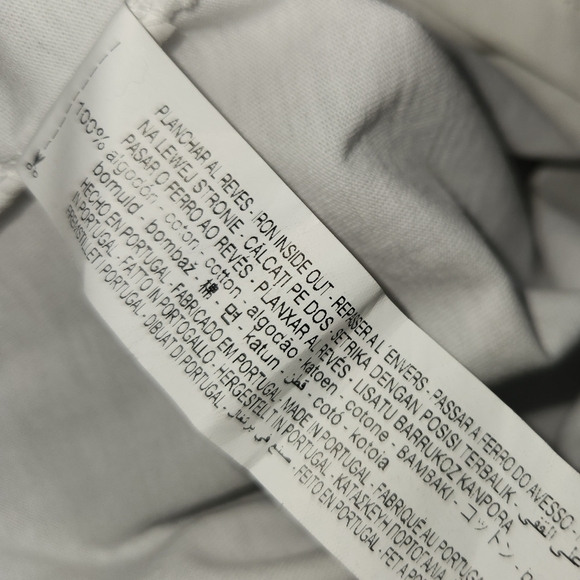 PLANCHAR AL REVÉS - IRON INSIDE OUT - REPASSER A L'ENVERS - PASSAR A FERRO DO AVESSO -
NA LEWEJ STRONIE - CĂLCAȚI PE DOS - SETRIKA DENGAN POSISI TERBALIK -
PASAR O FERRO AO REVÉS - PLANXAR AL REVÉS - LISATU BARRUKOZ KANPORA
100% algodón - coton - cotton - algodão - katoen - cotone - BAMBAKI - コットン -
bomuld - bombaz - 棉 - 면 - katun - قطن - cotó - kotoia
HECHO EN PORTUGAL - FABRICADO EM PORTUGAL - MADE IN PORTUGAL - FABRIQUÉ AU PORTUGAL
IN PORTUGAL - FATTO IN PORTOGALLO - HERGESTELLT IN PORTUGAL - ΚΑΤΑΣΚΕΥΗ ΠΟΡΤΟΓΑΛΙΑ
FREMSTILLET I PORTUGAL - DIBUAT DI PORTUGAL - صنع في برتغال - FEITO EN PORTUGAL - FET A